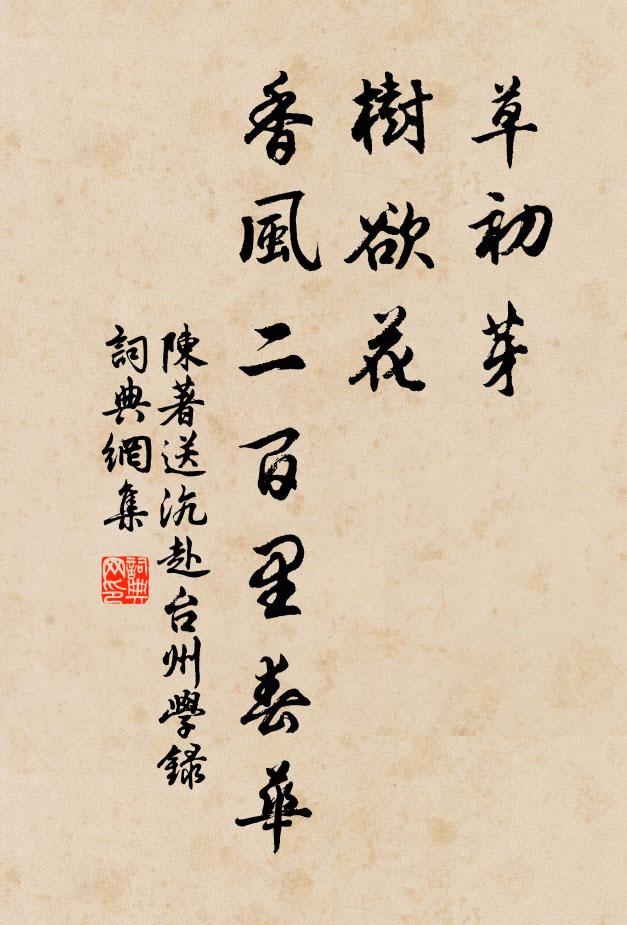 草初芽
樹欲花
香風二百里春華
陳著送沆赴台州學錄
詞典網集
詞典網印